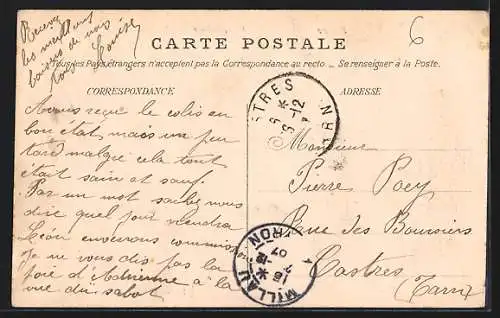 Recevez
les meilleurs
baisers de nous
tous Louise
6
CARTE POSTALE
Tous les Pays étrangers n'acceptent pas la Correspondance au recto. _ Se renseigner à la Poste.
CORRESPONDANCE
ADRESSE
Avons reçu le colis en
bon état mais un peu
tard malgré cela tout
était sain et sauf.
Par un mot nous
dire quel jour viendra
Léon enverrons
Je ne vous dis pas la
joie d'Adrienne à la
vue du sabot
Monsieur
Pierre Poey
Rue des Boursiers
Castres
(Tarn)
STRES
MILLAU